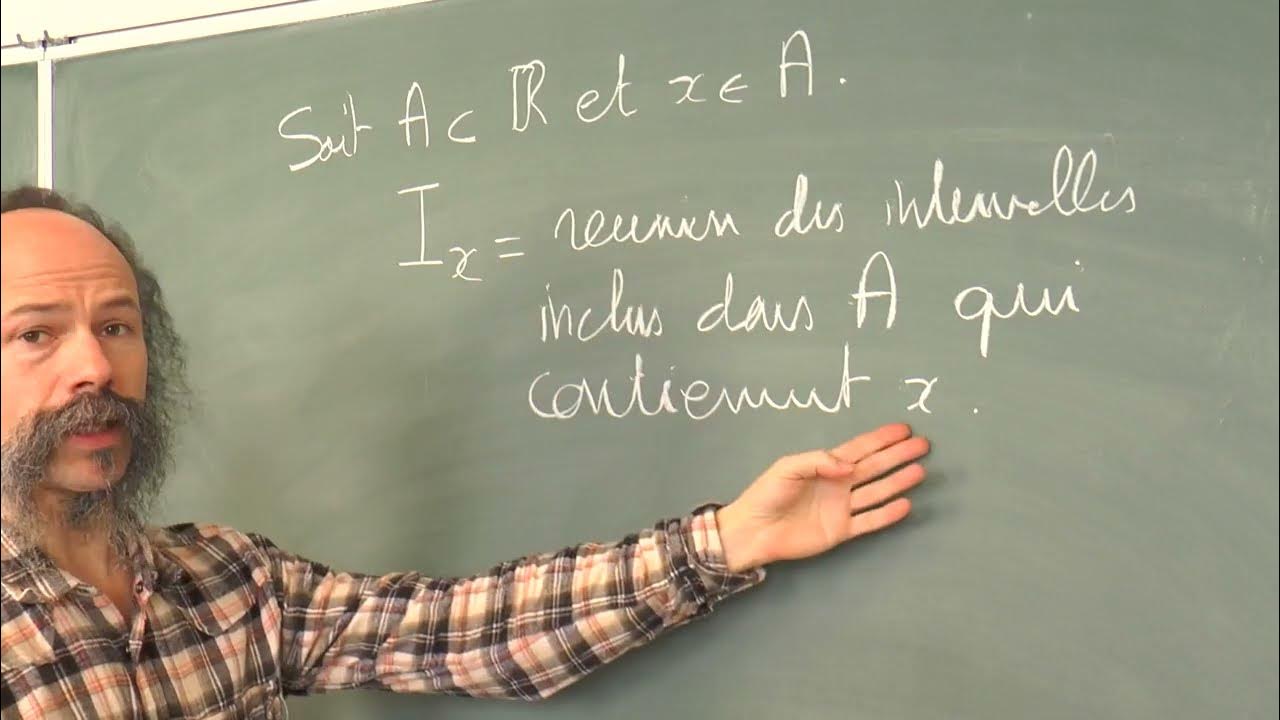 Soit A ⊂ ℝ et x ∈ A.
I_x = reunion des intervalles
inclus dans A qui
contiennent x.